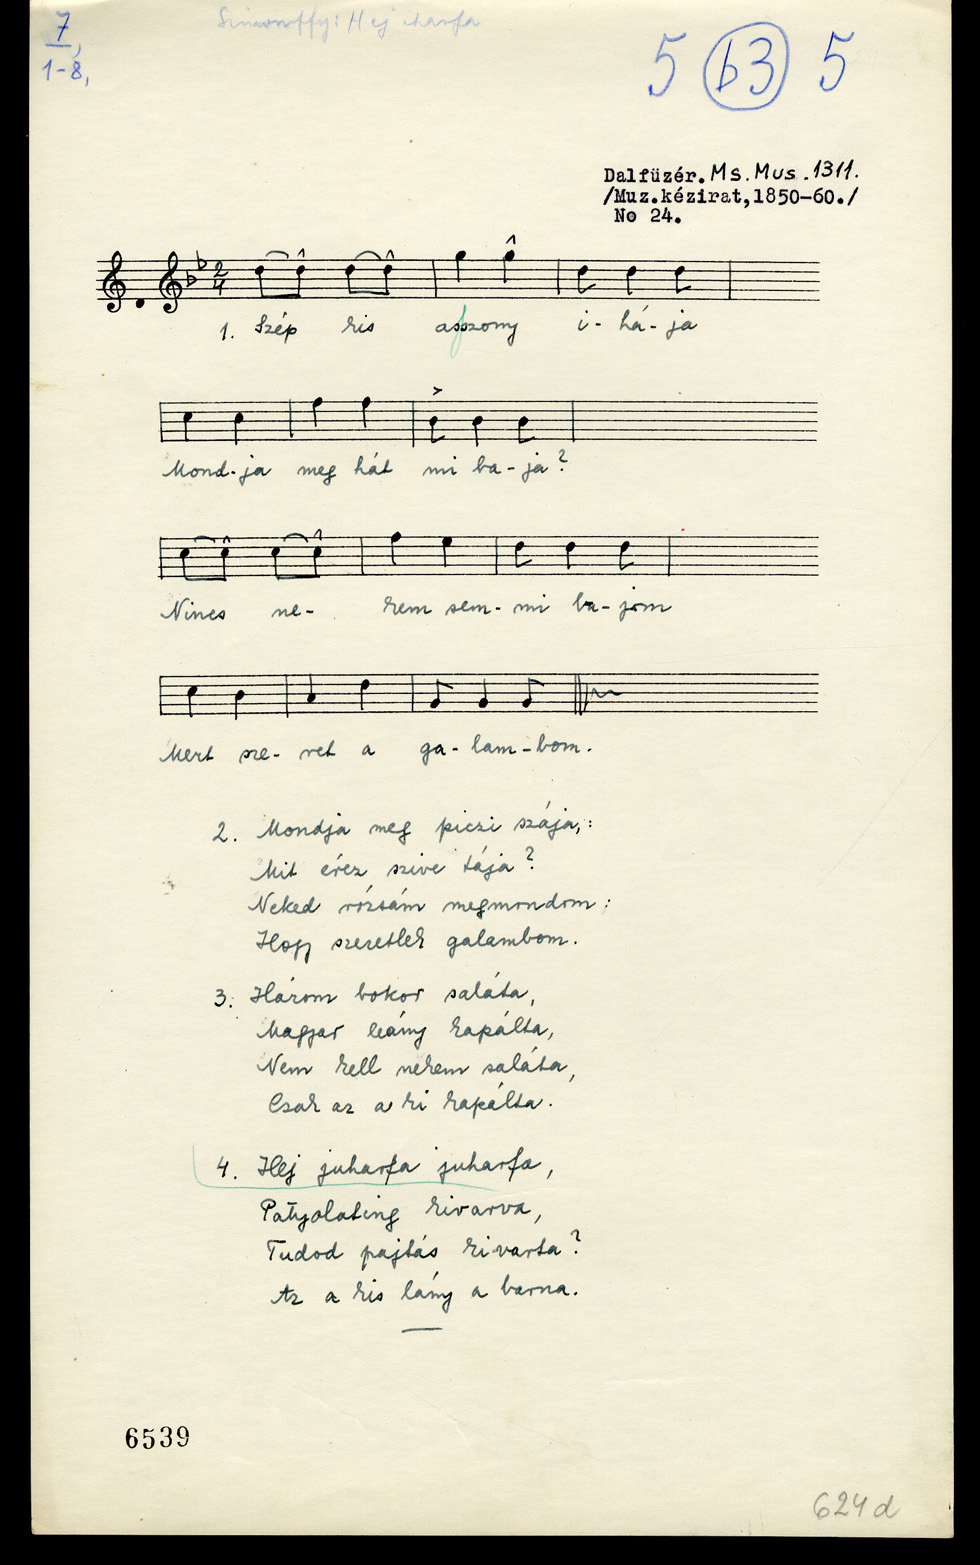 7,
1-8,
Hej iharfa
5 b3 5
Dalfüzér. Ms. Mus. 1311.
/Muz.kézirat,1850-60./
No 24.
2
4
1. Szép kis asszony i-há-ja
Mond-ja meg hát mi ba-ja?
Nincs ne- kem sem-mi ba-jom
Mert sze-ret a ga-lam-bom.
2. Mondja meg piczi szája,:
Mit érez szive tája?
Neked rózsám megmondom:
Hogy szeretlek galambom.
3. Három bokor saláta,
Magyar leány kapálta,
Nem kell nekem saláta,
Csak az a ki kapálta.
4. Hej juharfa juharfa,
Patyolating kivarva,
Tudod pajtás ki varta?
Az a kis lány a barna.
6539
624d